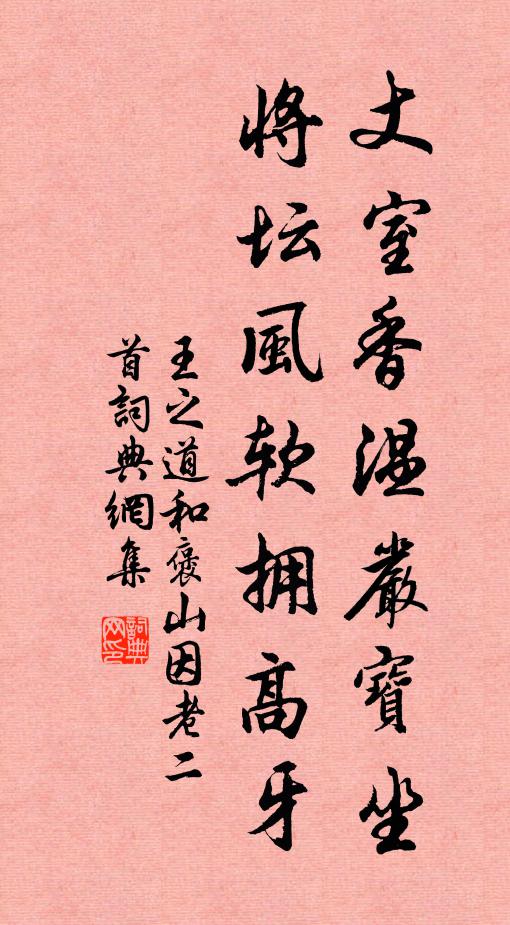 丈室香温嚴寶坐
将坛風软拥高牙
王之道和褒山因老二
首詞典網集
詞典网印